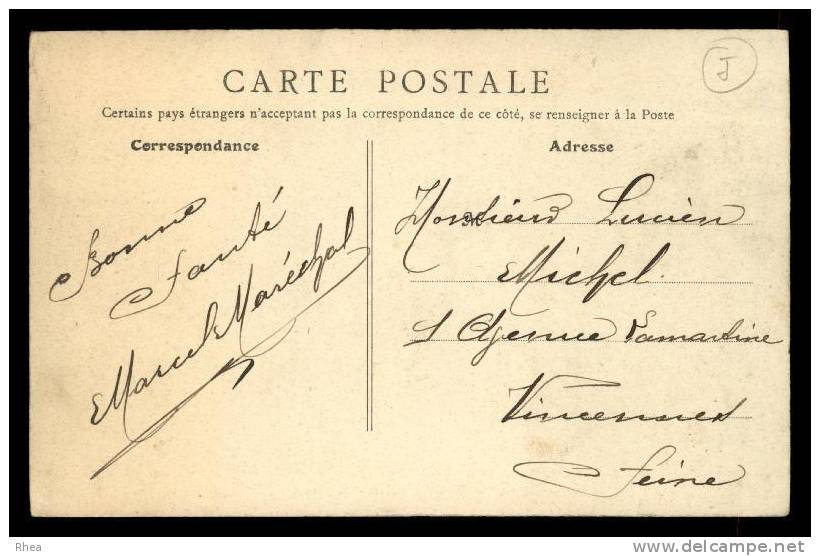 J
CARTE POSTALE
Certains pays étrangers n'acceptant pas la correspondance de ce côté, se renseigner à la Poste
Correspondance
Adresse
Bonne
Santé
Marcel Maréchal
Monsieur Lucien
Michel
1 Avenue Lamartine
Vincennes
Seine
Rhea
http://www.delcampe.net